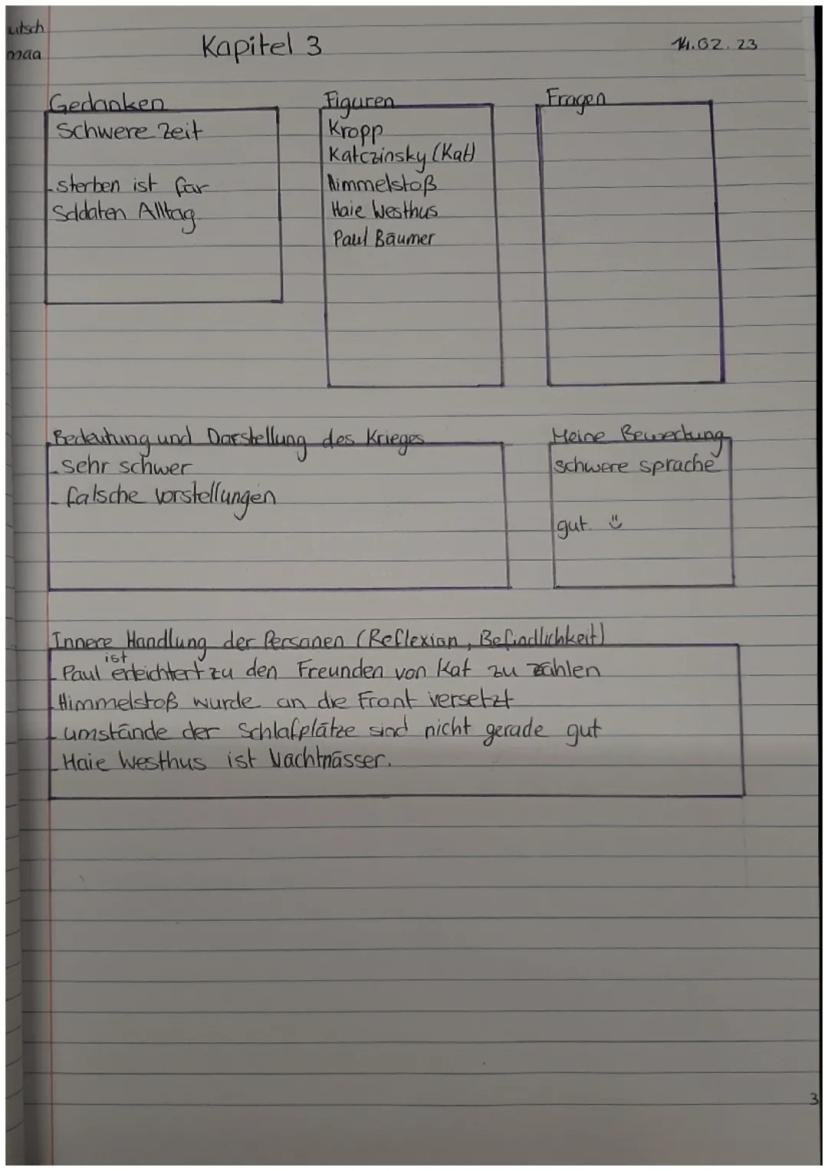 utsch
maa
Kapitel 3
14.02.23
Gedanken
Schwere Zeit
- sterben ist für
Soldaten Alltag
Figuren
Kropp
Katczinsky (Kat)
Himmelstoß
Haie Westhus
Paul Bäumer
Fragen
Bedeutung und Darstellung des Krieges
- sehr schwer
- falsche vorstellungen
Meine Bewertung
schwere sprache
gut ü
Innere Handlung der Personen (Reflexion, Befindlichkeit)
- Paul ist erleichtert zu den Freunden von Kat zu zählen
- Himmelstoß wurde an die Front versetzt
- umstände der Schlafplätze sind nicht gerade gut
- Haie Westhus ist Nachtnässer.
3